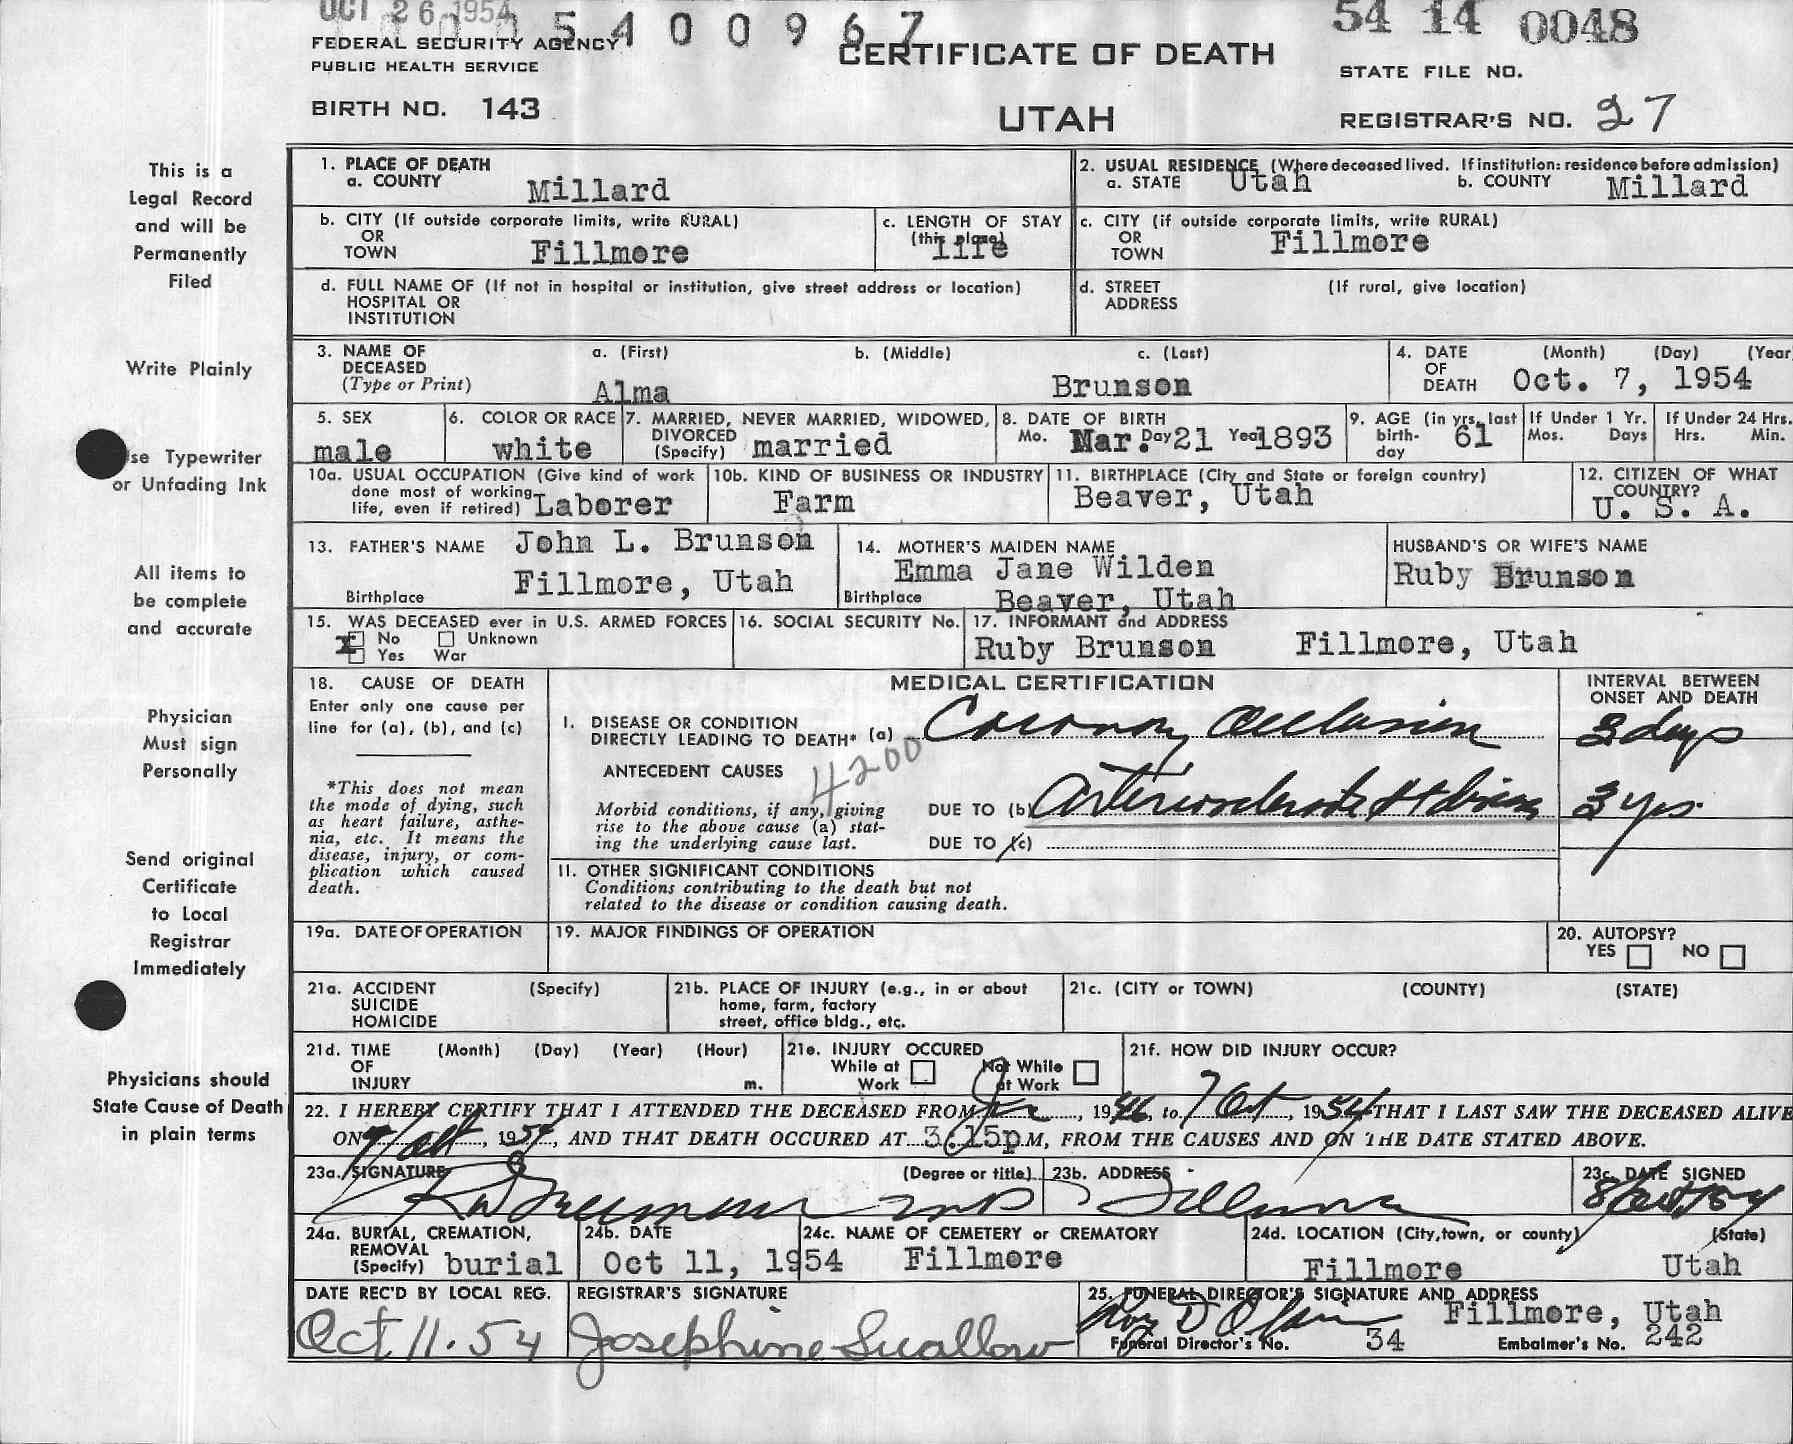 OCT 26 1954
5400967
54 14 0048
FEDERAL SECURITY AGENCY
PUBLIC HEALTH SERVICE
CERTIFICATE OF DEATH
STATE FILE NO.
BIRTH NO. 143
UTAH
REGISTRAR'S NO. 27
This is a
Legal Record
and will be
Permanently
Filed
Write Plainly
se Typewriter
or Unfading Ink
All items to
be complete
and accurate
Physician
Must sign
Personally
Send original
Certificate
to Local
Registrar
Immediately
Physicians should
State Cause of Death
in plain terms
1. PLACE OF DEATH
a. COUNTY Millard
2. USUAL RESIDENCE (Where deceased lived. If institution: residence before admission)
a. STATE Utah b. COUNTY Millard
b. CITY (If outside corporate limits, write RURAL)
OR
TOWN Fillmore
c. LENGTH OF STAY
(this place) life
c. CITY (if outside corporate limits, write RURAL)
OR
TOWN Fillmore
d. FULL NAME OF (If not in hospital or institution, give street address or location)
HOSPITAL OR
INSTITUTION
d. STREET (If rural, give location)
ADDRESS
3. NAME OF DECEASED (Type or Print)
a. (First) b. (Middle) c. (Last)
Alma Brunson
4. DATE OF DEATH (Month) (Day) (Year
Oct. 7, 1954
5. SEX
male
6. COLOR OR RACE
white
7. MARRIED, NEVER MARRIED, WIDOWED,
DIVORCED (Specify) married
8. DATE OF BIRTH
Mo. Mar. Day 21 Year 1893
9. AGE (in yrs. last birth-day 61
If Under 1 Yr.
Mos. Days
If Under 24 Hrs.
Hrs. Min.
10a. USUAL OCCUPATION (Give kind of work
done most of working
life, even if retired) Laborer
10b. KIND OF BUSINESS OR INDUSTRY
Farm
11. BIRTHPLACE (City and State or foreign country)
Beaver, Utah
12. CITIZEN OF WHAT
COUNTRY?
U. S. A.
13. FATHER'S NAME John L. Brunson
Birthplace Fillmore, Utah
14. MOTHER'S MAIDEN NAME
Emma Jane Wilden
Birthplace Beaver, Utah
HUSBAND'S OR WIFE'S NAME
Ruby Brunson
15. WAS DECEASED ever in U.S. ARMED FORCES
X No Unknown
Yes War
16. SOCIAL SECURITY No.
17. INFORMANT and ADDRESS
Ruby Brunson Fillmore, Utah
18. CAUSE OF DEATH
Enter only one cause per
line for (a), (b), and (c)
*This does not mean
the mode of dying, such
as heart failure, asthe-
nia, etc. It means the
disease, injury, or com-
plication which caused
death.
MEDICAL CERTIFICATION
INTERVAL BETWEEN
ONSET AND DEATH
I. DISEASE OR CONDITION
DIRECTLY LEADING TO DEATH* (a) Coronary Occlusion 3 days
4200
ANTECEDENT CAUSES
Morbid conditions, if any, giving
rise to the above cause (a) stat-
ing the underlying cause last.
DUE TO (b) Arteriosclerotic Ht disease 3 yrs
DUE TO (c)
11. OTHER SIGNIFICANT CONDITIONS
Conditions contributing to the death but not
related to the disease or condition causing death.
19a. DATE OF OPERATION
19. MAJOR FINDINGS OF OPERATION
20. AUTOPSY?
YES NO
21a. ACCIDENT (Specify)
SUICIDE
HOMICIDE
21b. PLACE OF INJURY (e.g., in or about
home, farm, factory
street, office bldg., etc.
21c. (CITY or TOWN) (COUNTY) (STATE)
21d. TIME (Month) (Day) (Year) (Hour)
OF
INJURY m.
21e. INJURY OCCURED
While at Work
Not While at Work
21f. HOW DID INJURY OCCUR?
22. I HEREBY CERTIFY THAT I ATTENDED THE DECEASED FROM 1946, to 7 Oct, 1954 THAT I LAST SAW THE DECEASED ALIVE
ON 7 Oct, 1954, AND THAT DEATH OCCURED AT 3:15p.M, FROM THE CAUSES AND ON THE DATE STATED ABOVE.
23a. SIGNATURE (Degree or title)
MD
23b. ADDRESS
Fillmore
23c. DATE SIGNED
8 Oct 54
24a. BURIAL, CREMATION,
REMOVAL
(Specify) burial
24b. DATE
Oct 11, 1954
24c. NAME OF CEMETERY or CREMATORY
Fillmore
24d. LOCATION (City, town, or county) (State)
Fillmore Utah
DATE REC'D BY LOCAL REG.
Oct 11. 54
REGISTRAR'S SIGNATURE
Josephine Swallow
25. FUNERAL DIRECTOR'S SIGNATURE AND ADDRESS
Fillmore, Utah
Funeral Director's No. 34 Embalmer's No. 242